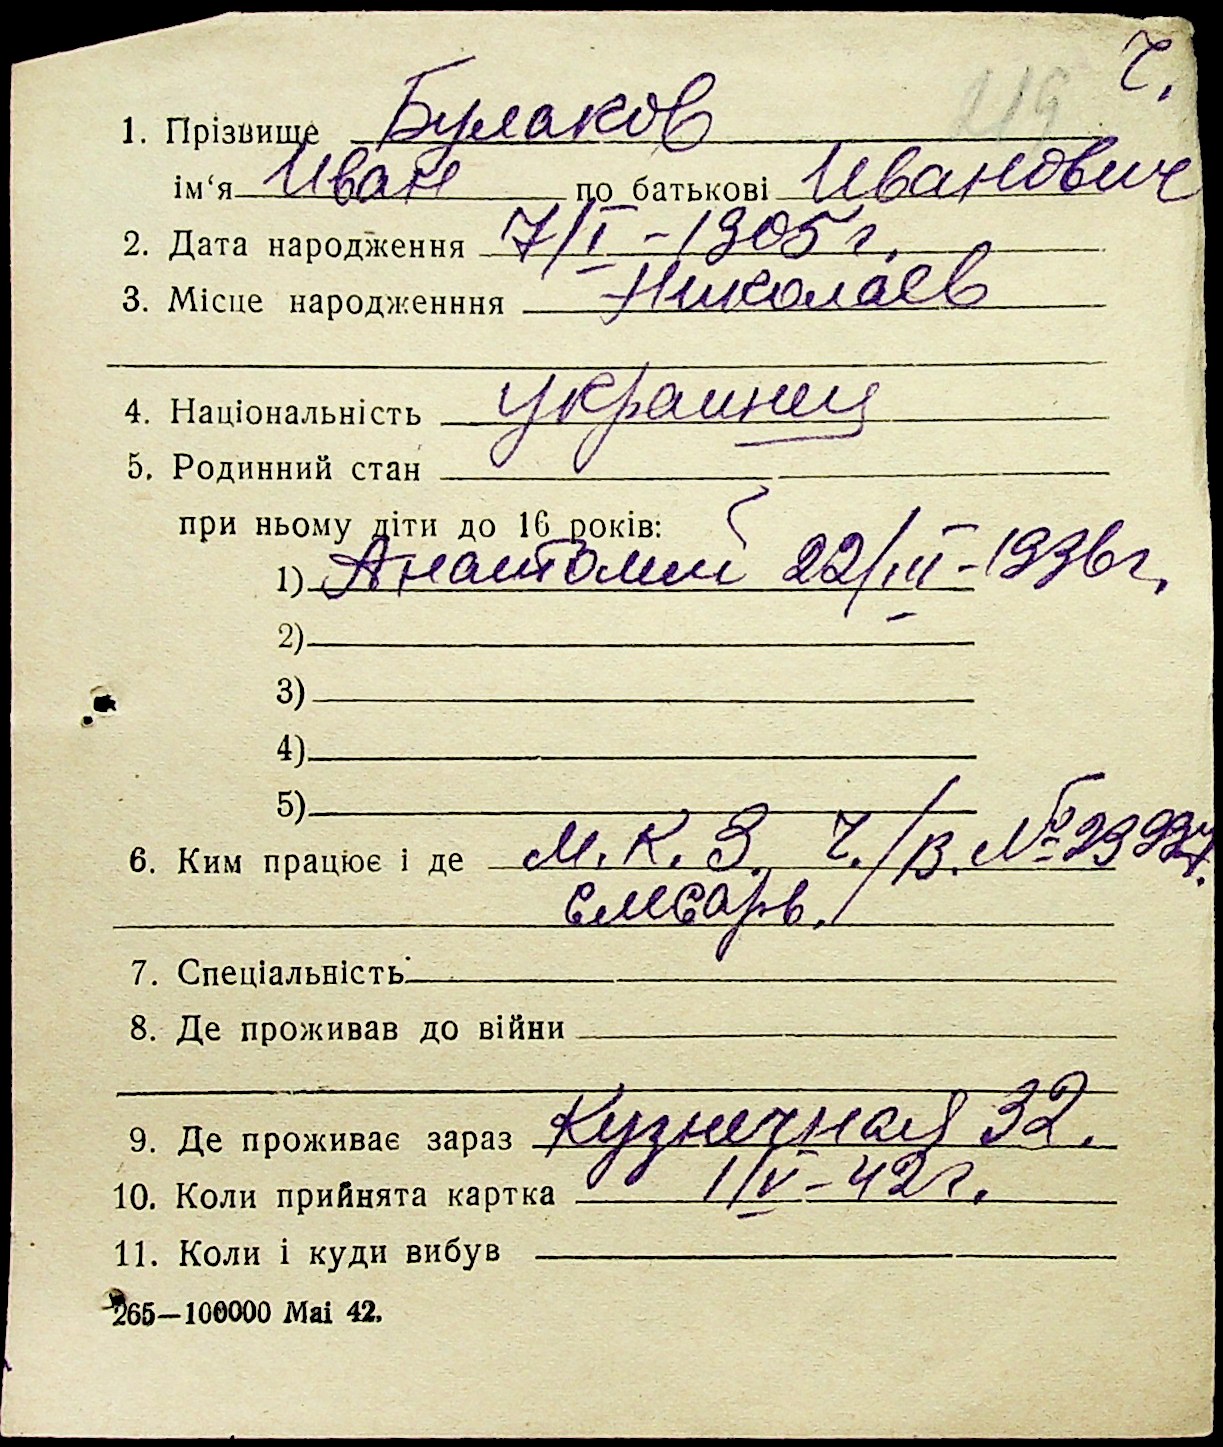 ч.
219
1. Прізвище Булаков
ім‘я Иван по батькові Иванович
2. Дата народження 7/I - 1905 г.
3. Місце народженння Николаев
4. Національність украинец
5. Родинний стан
при ньому діти до 16 років:
1) Анатолий 22/III - 1936 г.
2)
3)
4)
5)
6. Ким працює і де М. К. З. Ч./В. №
слесарь.
7. Спеціальність
8. Де проживав до війни
9. Де проживає зараз Кузнечная 32.
10. Коли прийнята картка 1/V - 42 г.
11. Коли і куди вибув
265—100000 Mai 42.